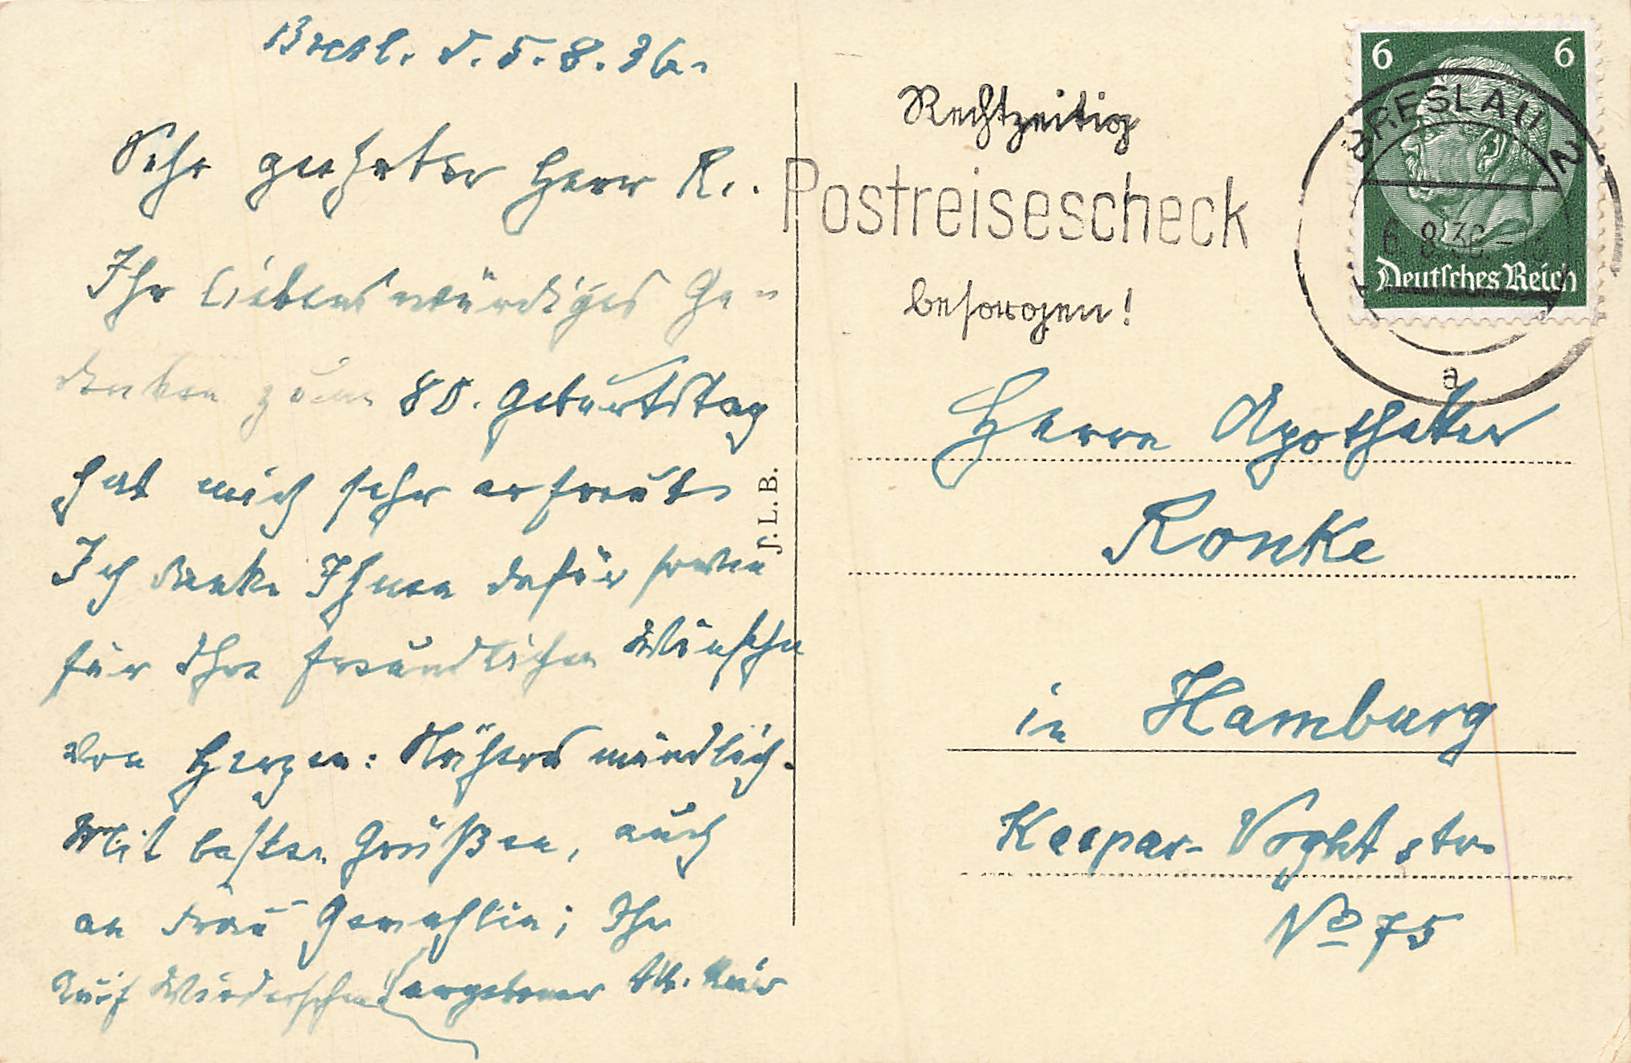 Bresl. d. 5. 8. 36.
Sehr geehrter Herr R..
Ihr liebenswürdiges Ge-
denken zum 80. Geburtstag
hat mich sehr erfreut.
Ich danke Ihnen dafür sowie
für Ihre freundlichen Wünsche
von Herzen: Näheres mündlich.
Mit besten Grüßen, auch
an Frau Gemahlin; Ihr
Auf Wiedersehen! ergebener
J. L. B.
Rechtzeitig
Postreisescheck
besorgen!
6 6
Deutsches Reich
BRESLAU 2
6. 8. 36
a
Herrn Apotheker
Ronke
in Hamburg
Kaspar-Voghtstr.
No 75